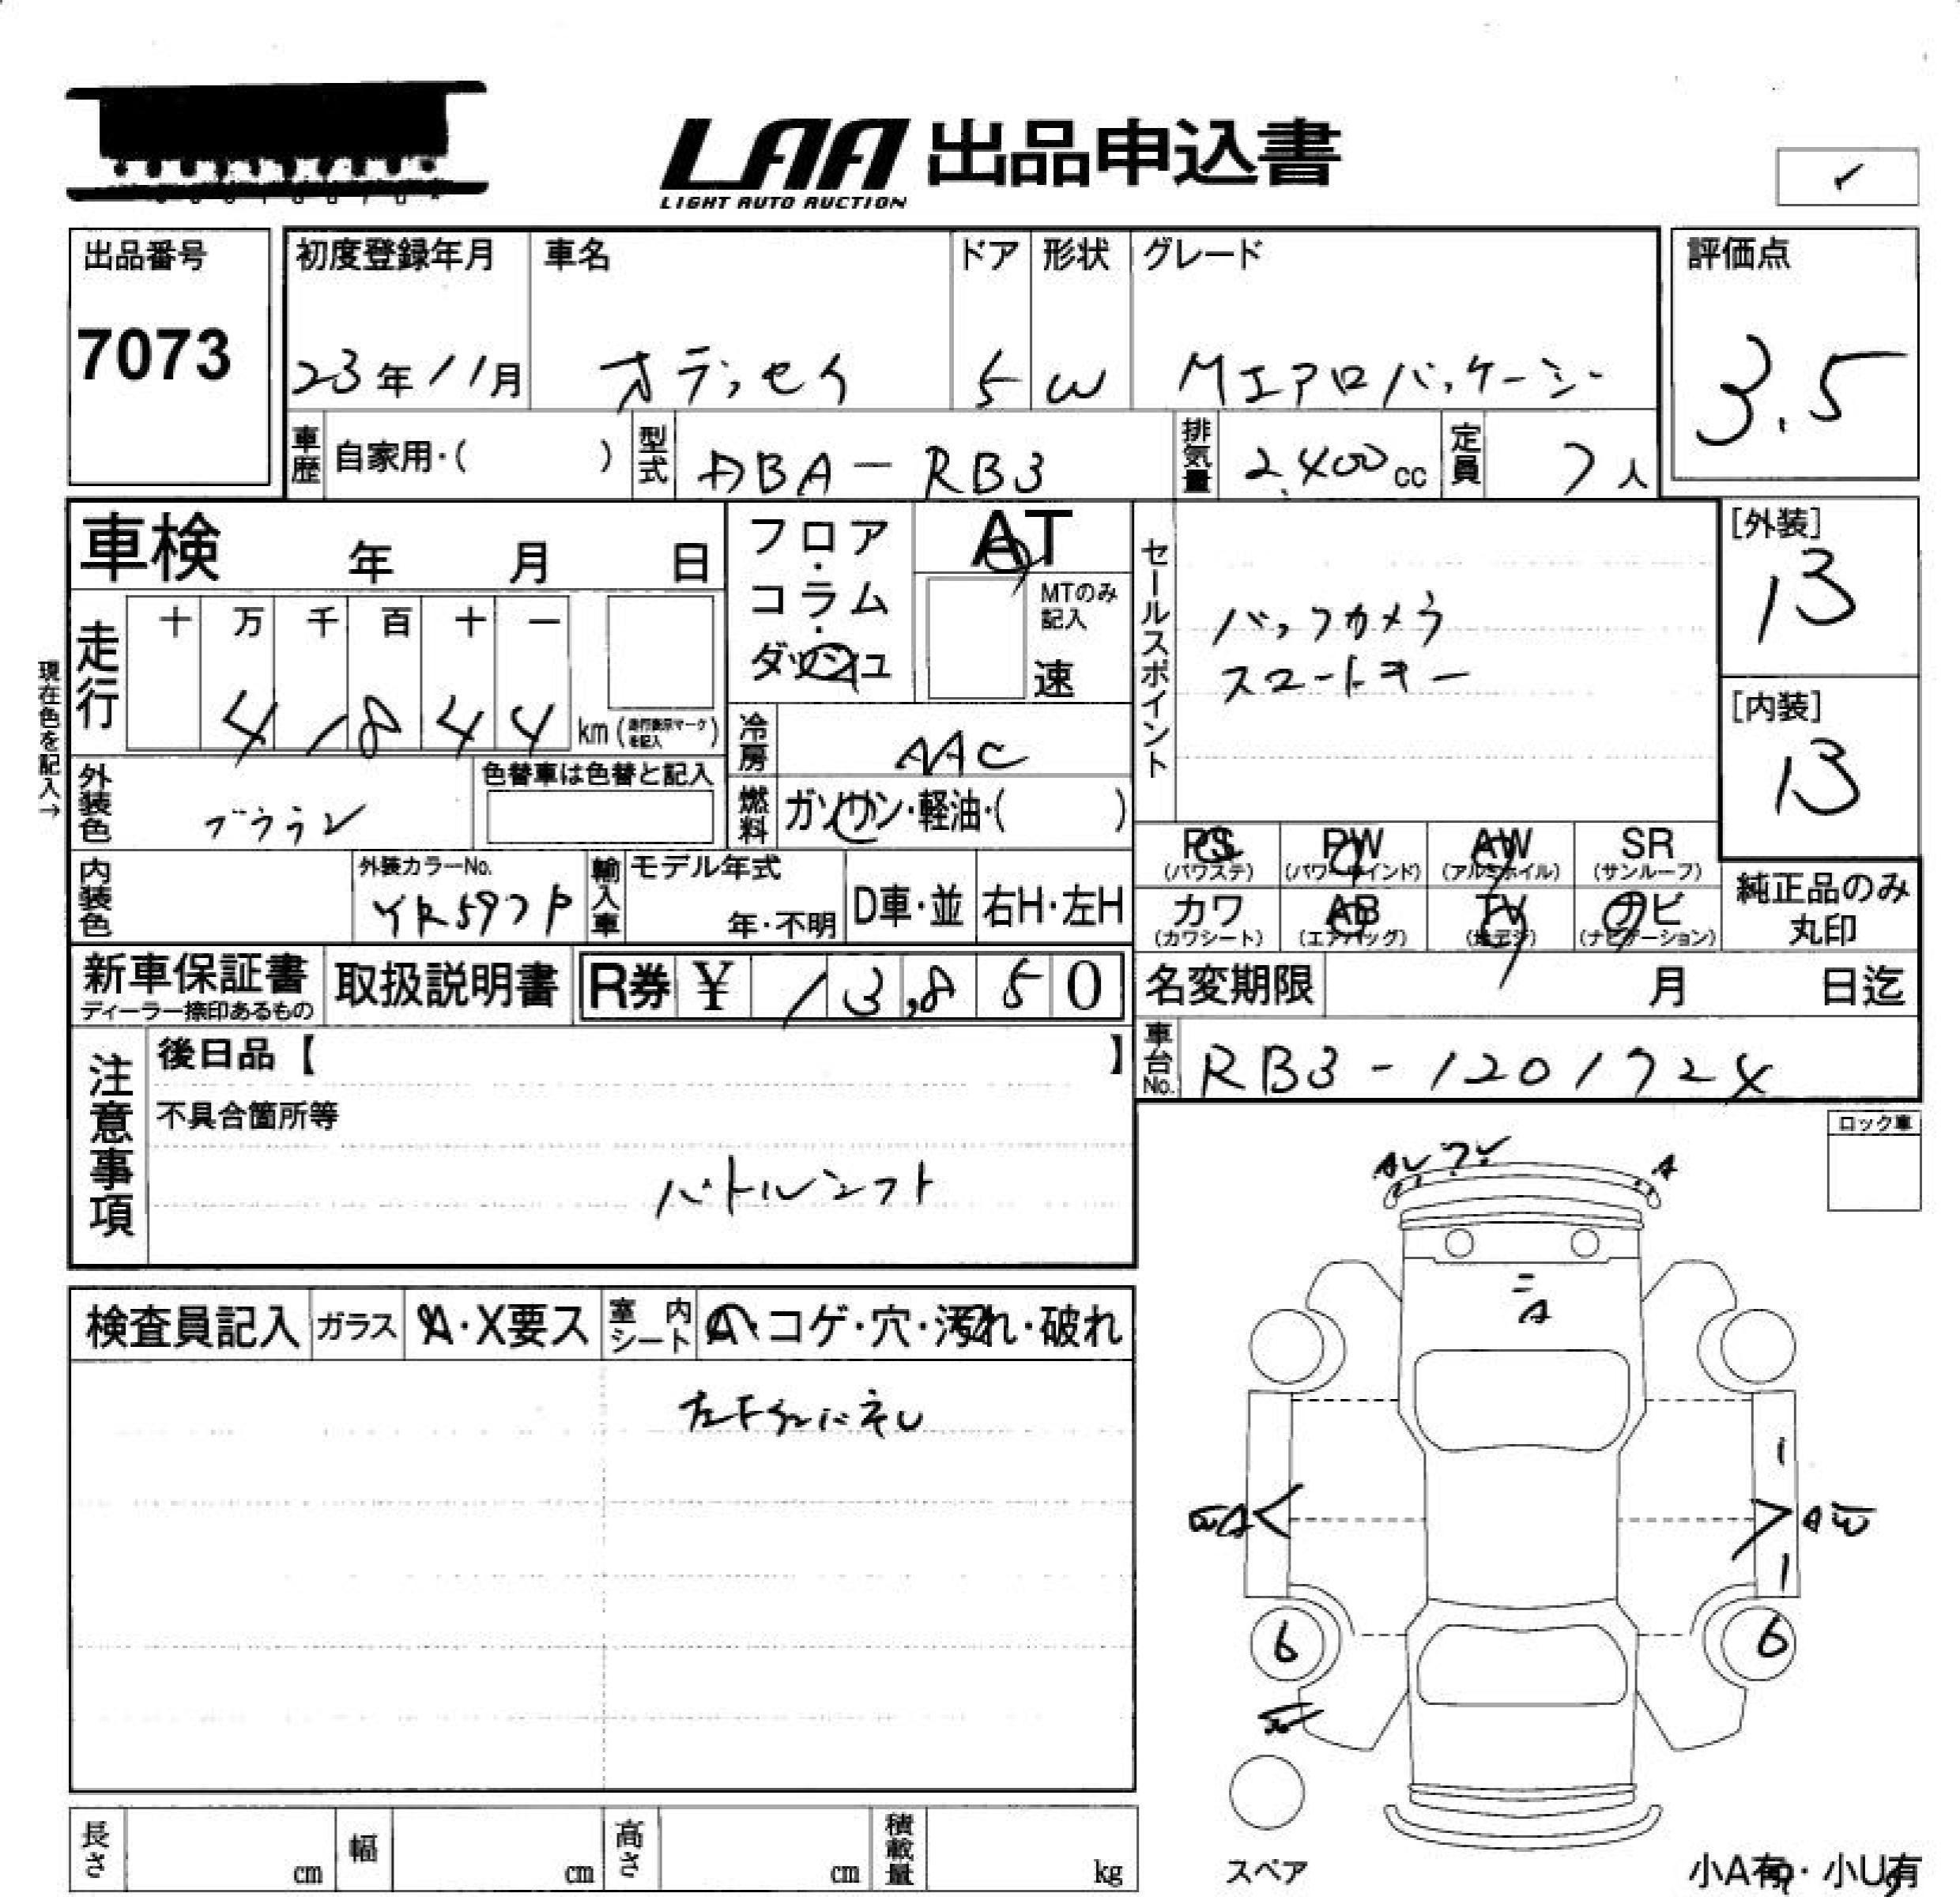 LAA 出品申込書
LIGHT AUTO AUCTION
✓
出品番号
7073
初度登録年月 車名 ドア 形状 グレード
23年11月 オデッセイ 5 W Mエアロパッケージ
評価点
3.5
車歴 自家用・( ) 型式 DBA-RB3 排気量 2,400cc 定員 7人
車検 年 月 日
フロア・コラム・ダッシュ
AT
MTのみ記入
速
セールスポイント
バックカメラ
スマートキー
[外装]
13
[内装]
13
現在色を記入→
走行 十 万 千 百 十 一
4 1 8 4 4 km(走行表示マークを記入)
冷房 AAC
外装色 ブラウン 色替車は色替と記入
燃料 ガソリン・軽油・( )
PS PW AW SR
(パワステ) (パワーウインド) (アルミホイル) (サンルーフ)
カワ AB TV ナビ
(カワシート) (エアバッグ) (地デジ) (ナビゲーション)
純正品のみ
丸印
内装色 外装カラーNo. YR597P 輸入車 モデル年式 年・不明 D車・並 右H・左H
新車保証書 取扱説明書 R券 ¥ 13,850
ディーラー捺印あるもの
名変期限 月 日迄
車台No. RB3-1201724
注意事項
後日品【 】
不具合箇所等
パドルシフト
ロック車
検査員記入 ガラス A・X要ス 室内シート A・コゲ・穴・汚れ・破れ
A
A
A
A
1
1
6 6
スペア
小A有・小U有
長さ cm 幅 cm 高さ cm 積載量 kg